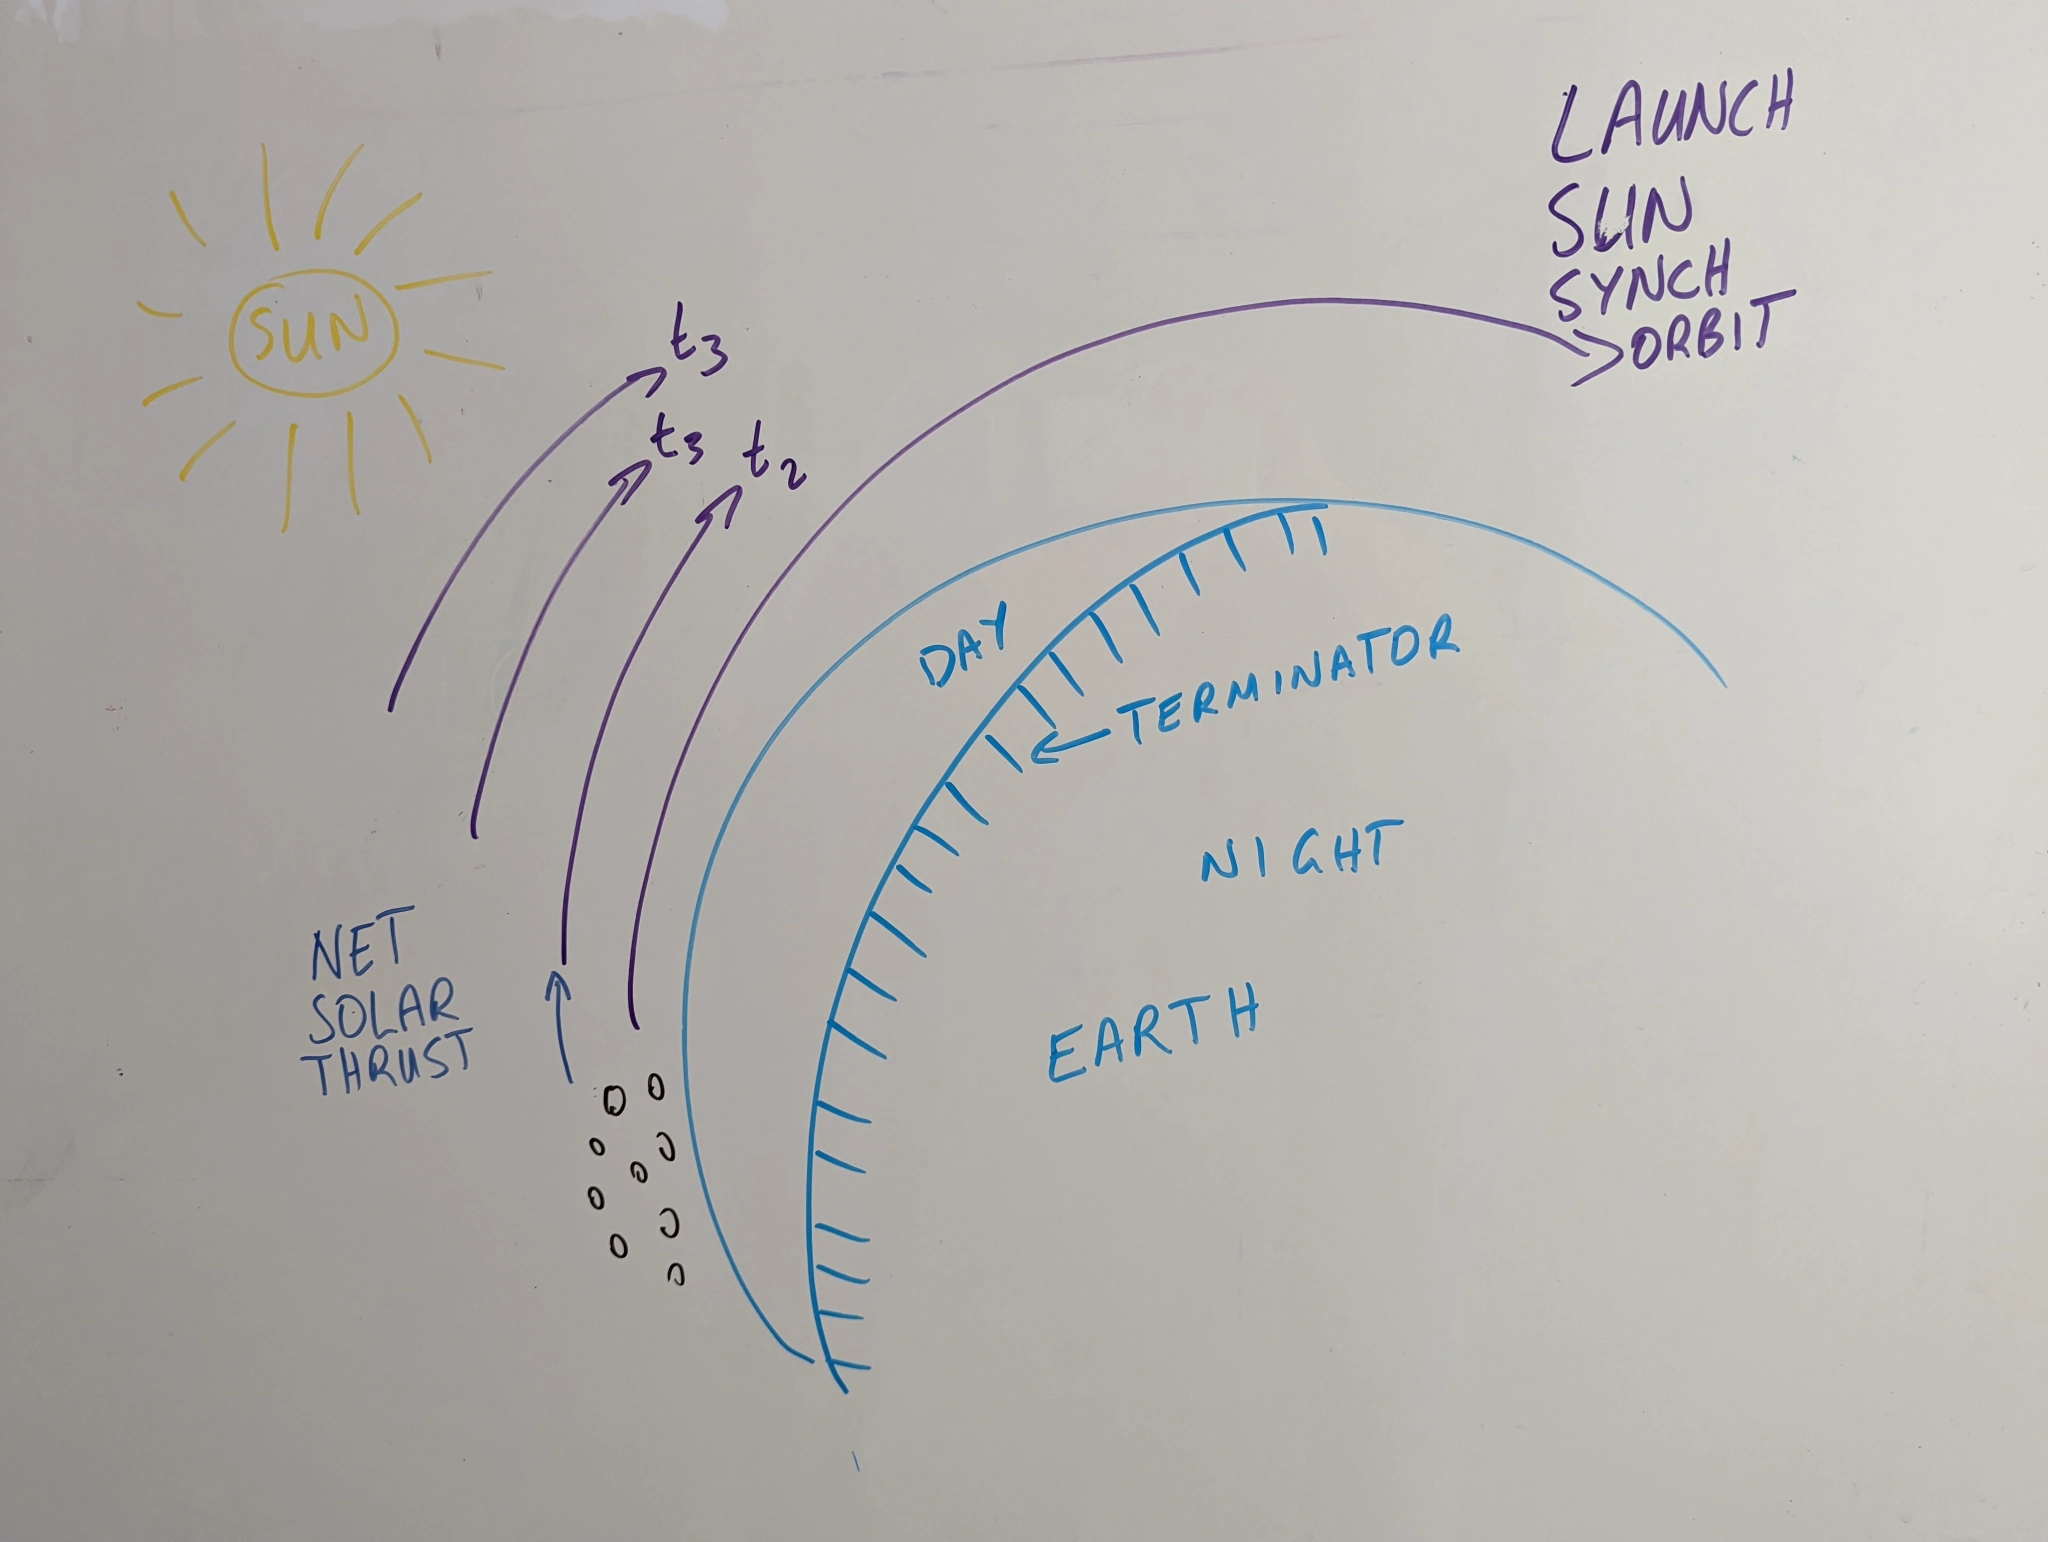 LAUNCH
SUN
SYNCH
ORBIT
SUN
t3
t3
t2
DAY
TERMINATOR
NIGHT
NET
SOLAR
THRUST
EARTH